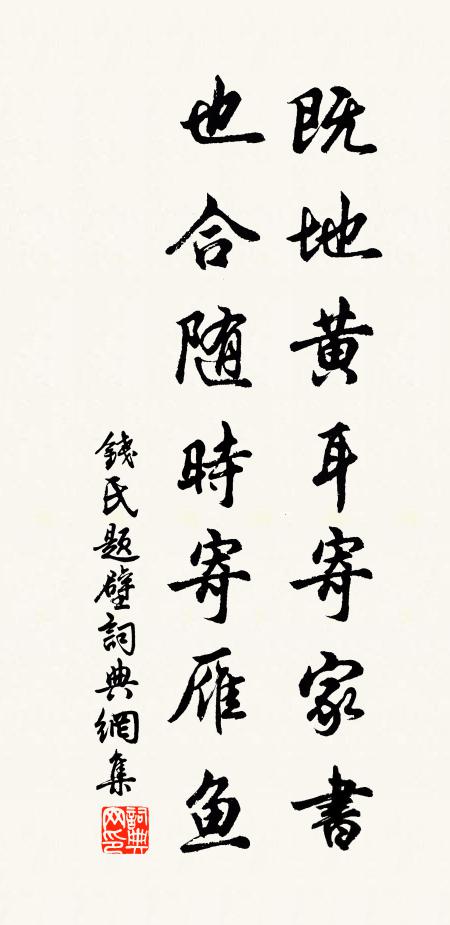 既地黄耳寄家書
也合随時寄雁鱼
錢氏题壁詞典網集
詞典网印